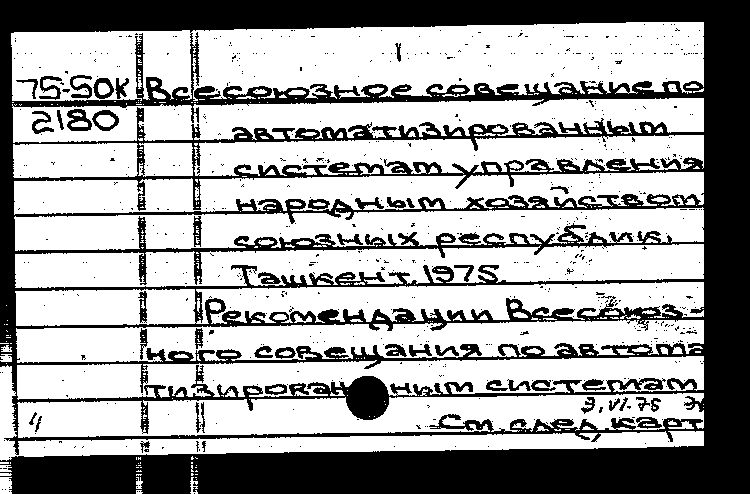 75-50К Всесоюзное совещание по
2180 автоматизированным
системам управления
народным хозяйством
союзных республик.
Ташкент. 1975.
Рекомендации Всесоюз-
ного совещания по автома
тизированным системам
3.VI.75
4 См. след. карт